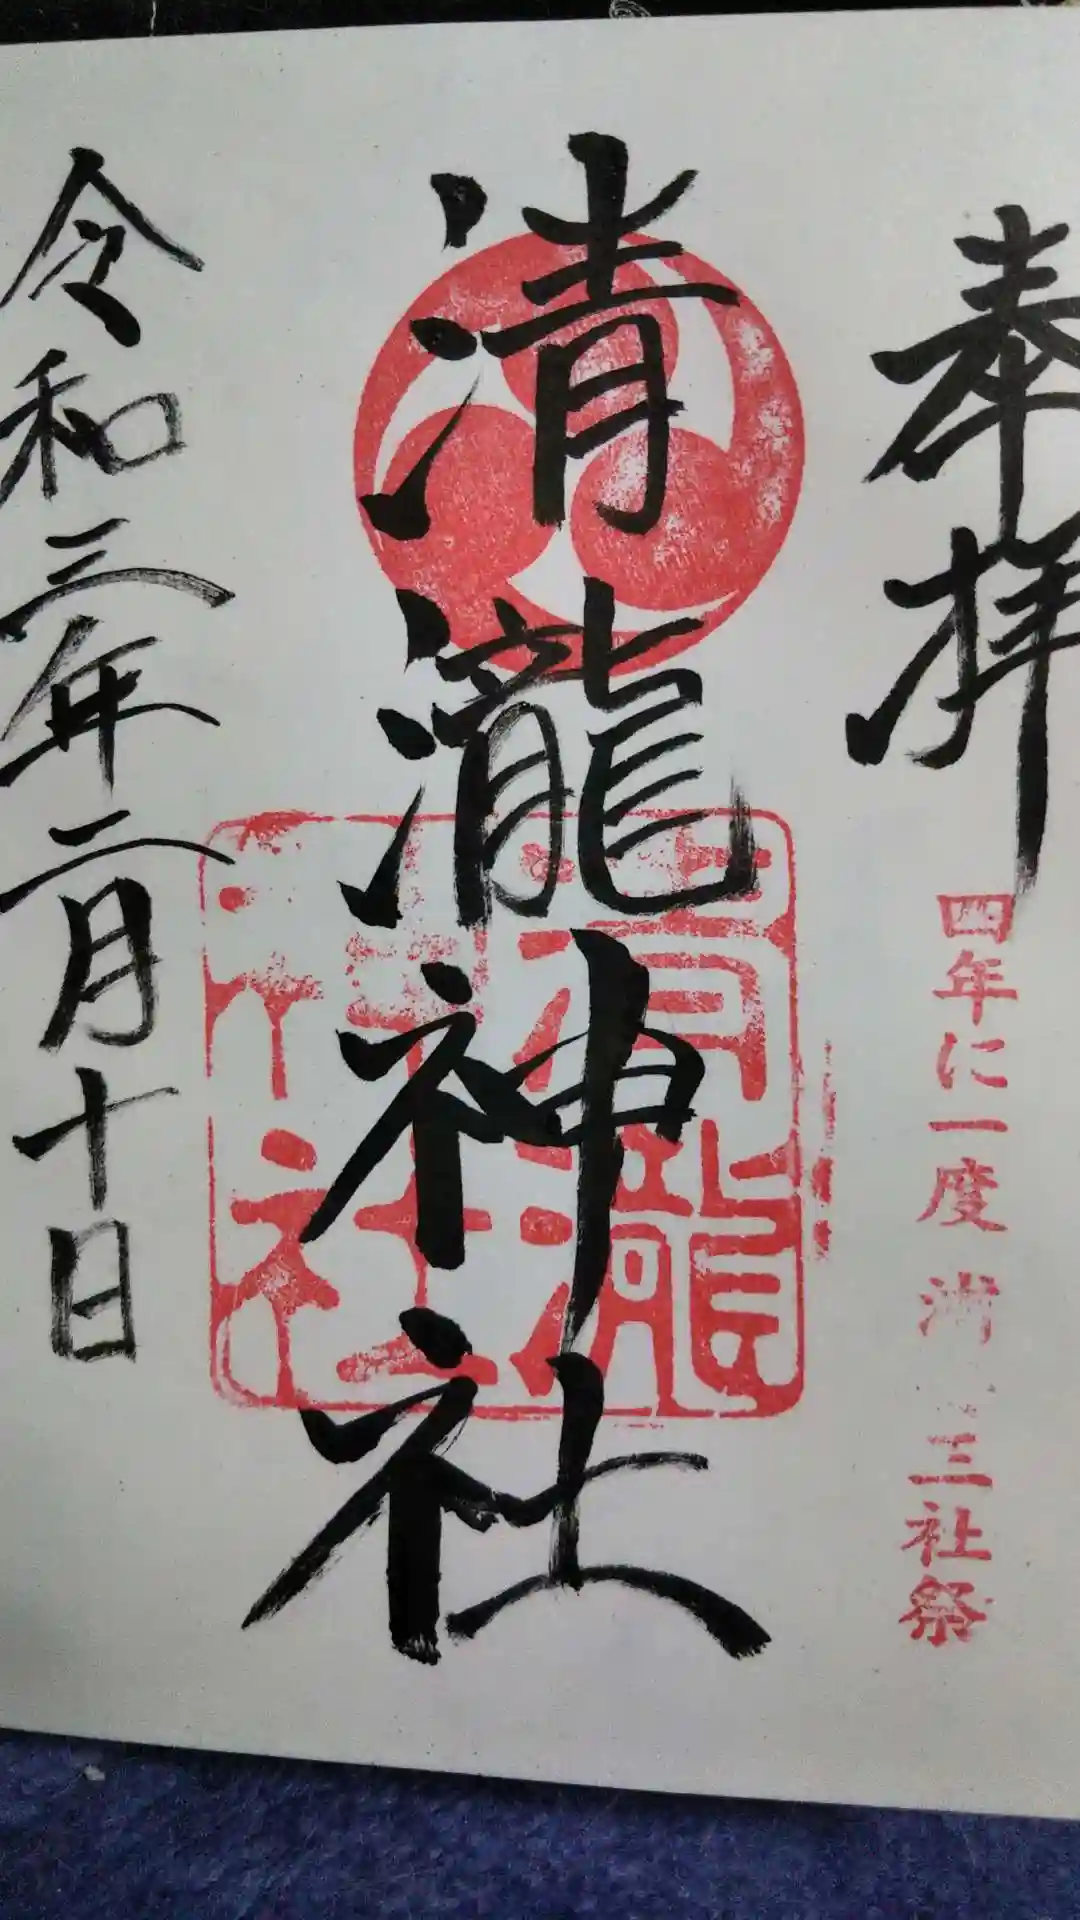 奉拝
四年に一度
三社祭
清瀧神社
清瀧
神社
令和三年二月十日